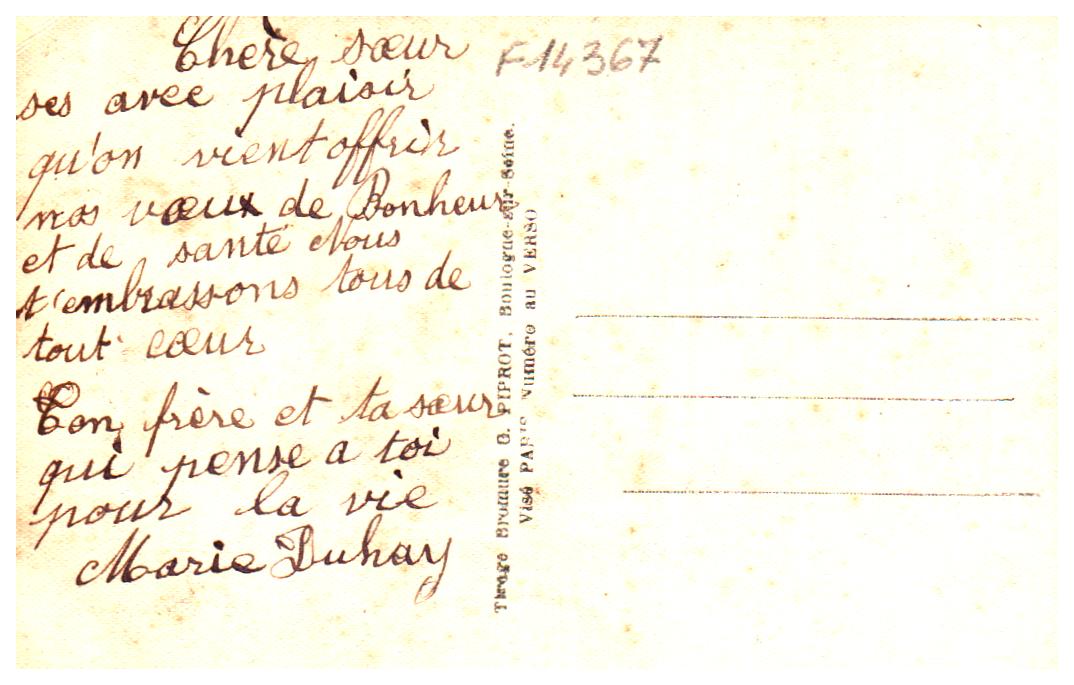 Chère sœur
ses avec plaisir
qu'on vient offrir
nos vœux de Bonheur
et de santé Nous
t'embrassons tous de
tout cœur
Ton frère et ta sœur
qui pense a toi
pour la vie
Marie Duhay
F 14367
Tirage Bromure G. PIPROT, Boulogne-sur-Seine.
Visé PARIS Numéro au VERSO